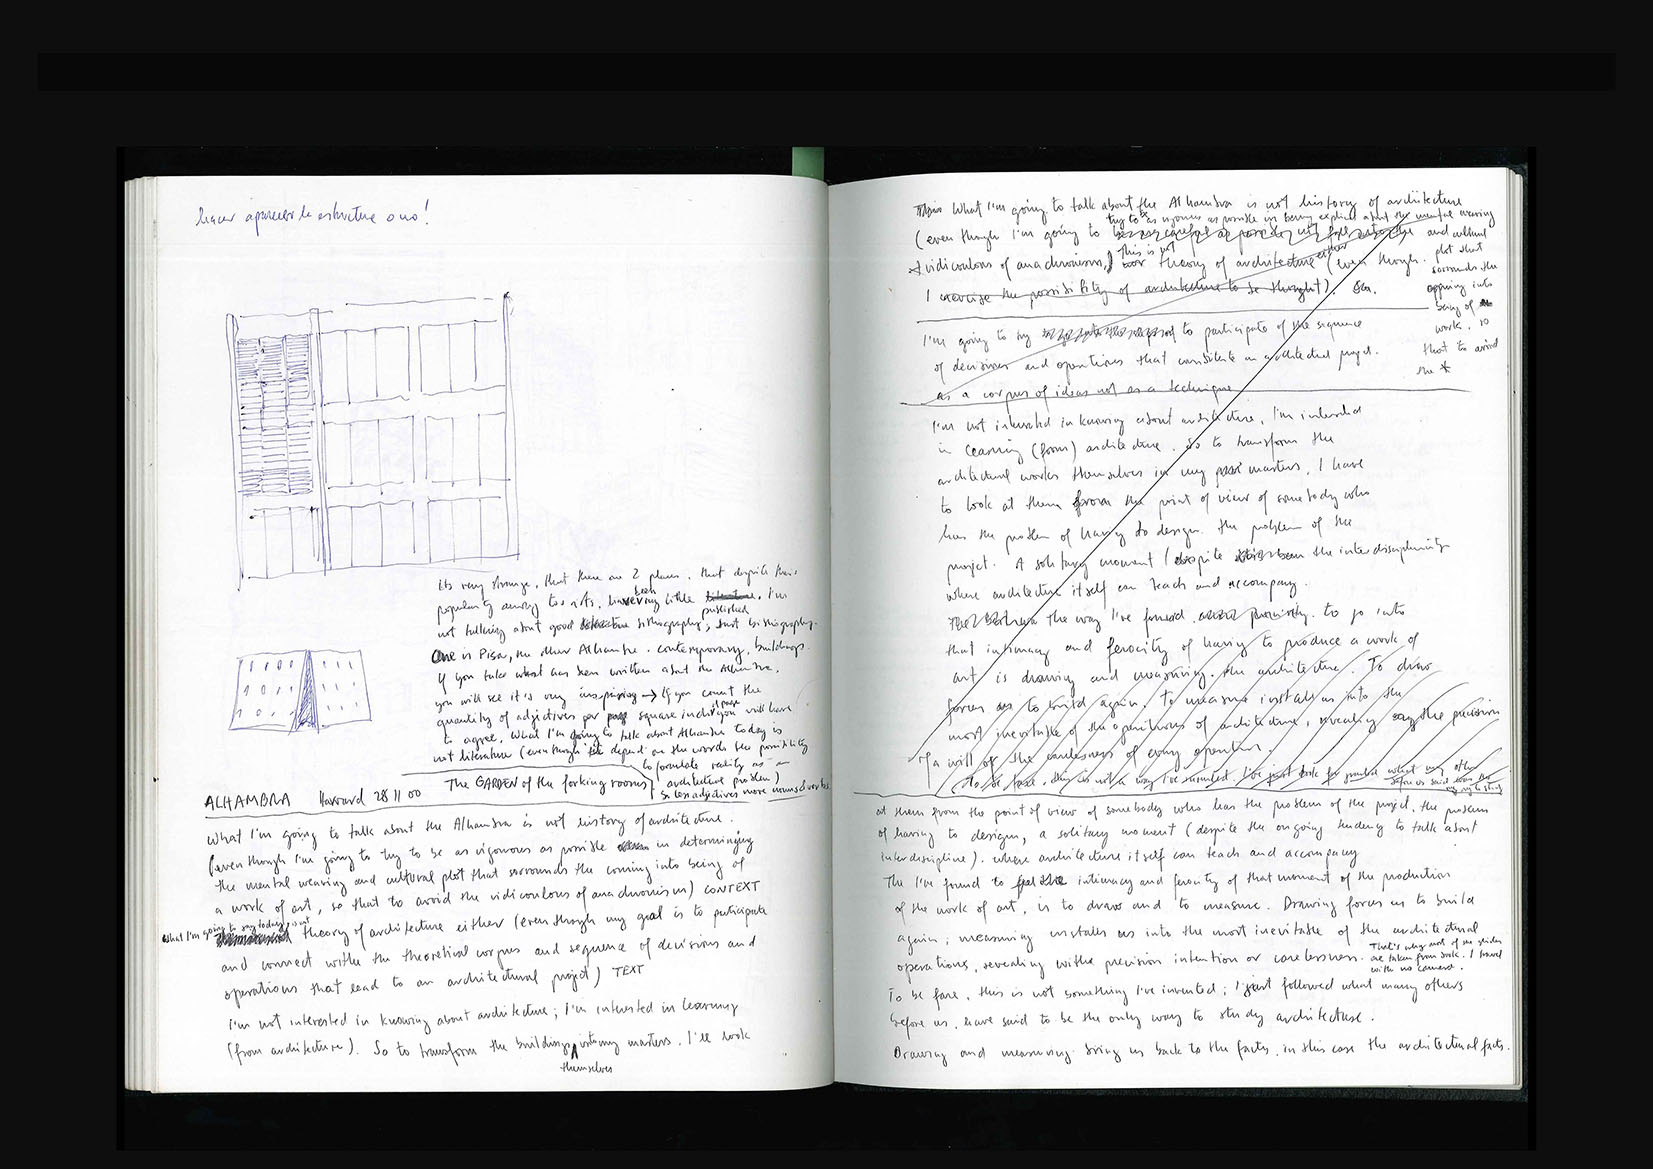 hacer aparecer la estructura o no!
its very strange, that there are 2 places, that despite their
popularity among tourists, having been little published. I'm
not talking about good bibliography, just bibliography.
One is Pisa, the other Alhambra. contemporary, buildings.
If you take what has been written about the Alhambra,
you will see it is very inspiring → If you count the
quantity of adjectives per square inch/page you will have
to agree. What I'm going to talk about Alhambra today is
not literature (even though I'll depend on the words the possibility
to formulate reality as an
architecture problem)
so less adjectives more nouns & verbs
The GARDEN of the forking rooms
ALHAMBRA Harvard 28 11 00
What I'm going to talk about the Alhambra is not history of architecture.
(even though I'm going to try to be as rigorous as possible in determining
the mental weaving and cultural plot that sorrounds the coming into being of
a work of art, so that to avoid the ridiculous of anachronism) CONTEXT
What I'm going to say today is not
theory of architecture either (even though my goal is to participate
and connect with the theoretical corpus and sequence of decisions and
operations that lead to an architectural project) TEXT
I'm not interested in knowing about architecture; I'm interested in learning
(from architecture). So to transform the buildings themselves into my masters, I'll look
What I'm going to talk about the Alhambra is not history of architecture
try to be as rigorous as possible in being explicit about the mental weaving
(even though I'm going to
and cultural
plot that
sorrounds the
coming into
being of
work, so
that to avoid
the *
* ridiculous of anachronism) This is not theory of architecture either (even though
I exercise the possibility of architecture to be thought).
I'm going to try to participate of the sequence
of decisions and operations that constitute an architectural project.
as a corpus of ideas not as a technique
I'm not interested in knowing about architecture, I'm interested
in learning (from) architecture. So to transform the
architectural works themselves in my masters, I have
to look at them from the point of view of somebody who
has the problem of having to design. the problem of the
project. A solitary moment (despite the interdisciplinarity
where architecture itself can teach and accompany.
the way I've found to go into
that intimacy and ferocity of having to produce a work of
art is drawing and measuring the architecture. To draw
forces us to build again. To measure installs us into the
most inevitable of the operations of architecture, revealing the precision
of a will or the carelessness of every operation.
To be fare, this is not a way I've invented. I've just
at them from the point of view of somebody who has the problem of the project, the problem
of having to design, a solitary moment (despite the ongoing tendency to talk about
interdiscipline). where architecture itself can teach and accompany
The I've found to intimacy and ferocity of that moment of the production
of the work of art, is to draw and to measure. Drawing forces us to build
again; measuring installs us into the most inevitable of the architectural
operations, revealing withe precision intention or carelessness.
That's why most of the slides
are taken from book. I travel
with no camera.
To be fare, this is not something I've invented; I just followed what many others
before us, have said to be the only way to study architecture.
Drawing and measuring bring us back to the facts, in this case the architectural facts.